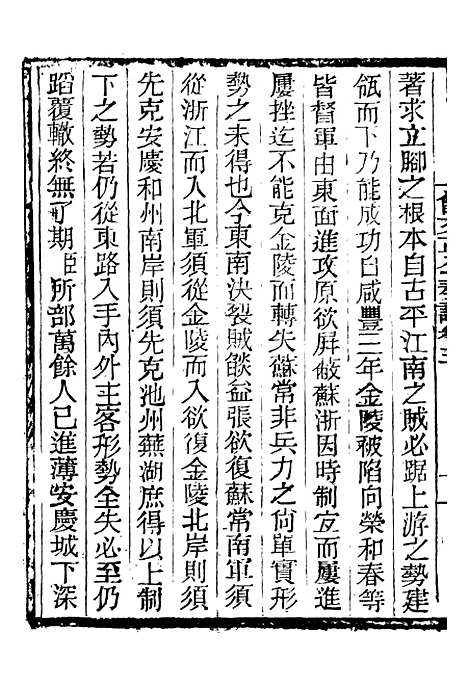 著求立腳之根本自古平江南之賊必踞上游之勢建
瓴而下乃能成功自咸豐三年金陵被陷向榮和春等
皆督軍由東面進攻原欲屏蔽蘇浙因時制宜而屢進
屢挫迄不能克金陵而轉失蘇常非兵力之尚單實形
勢之未得也今東南決裂賊燄益張欲復蘇常南軍須
從浙江而入北軍須從金陵而入欲復金陵北岸則須
先克安慶和州南岸則須先克池州蕪湖庶得以上制
下之勢若仍從東路入手內外主客形勢全失必至仍
蹈覆轍終無了期臣所部萬餘人已進薄安慶城下深